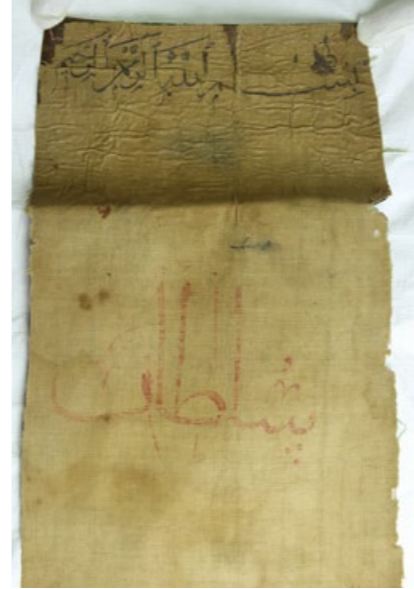 بسم الله الرحمن الرحيم
سلطان